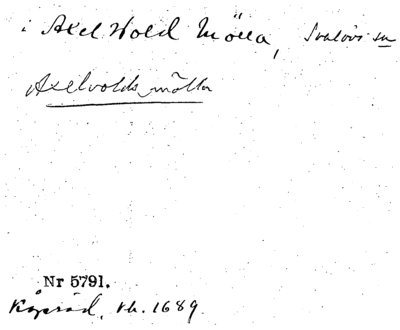 i Axel Wold Mölla, Svalövs sn
Axelvolds mölla
Nr 5791.
Köpråd, th. 1689.